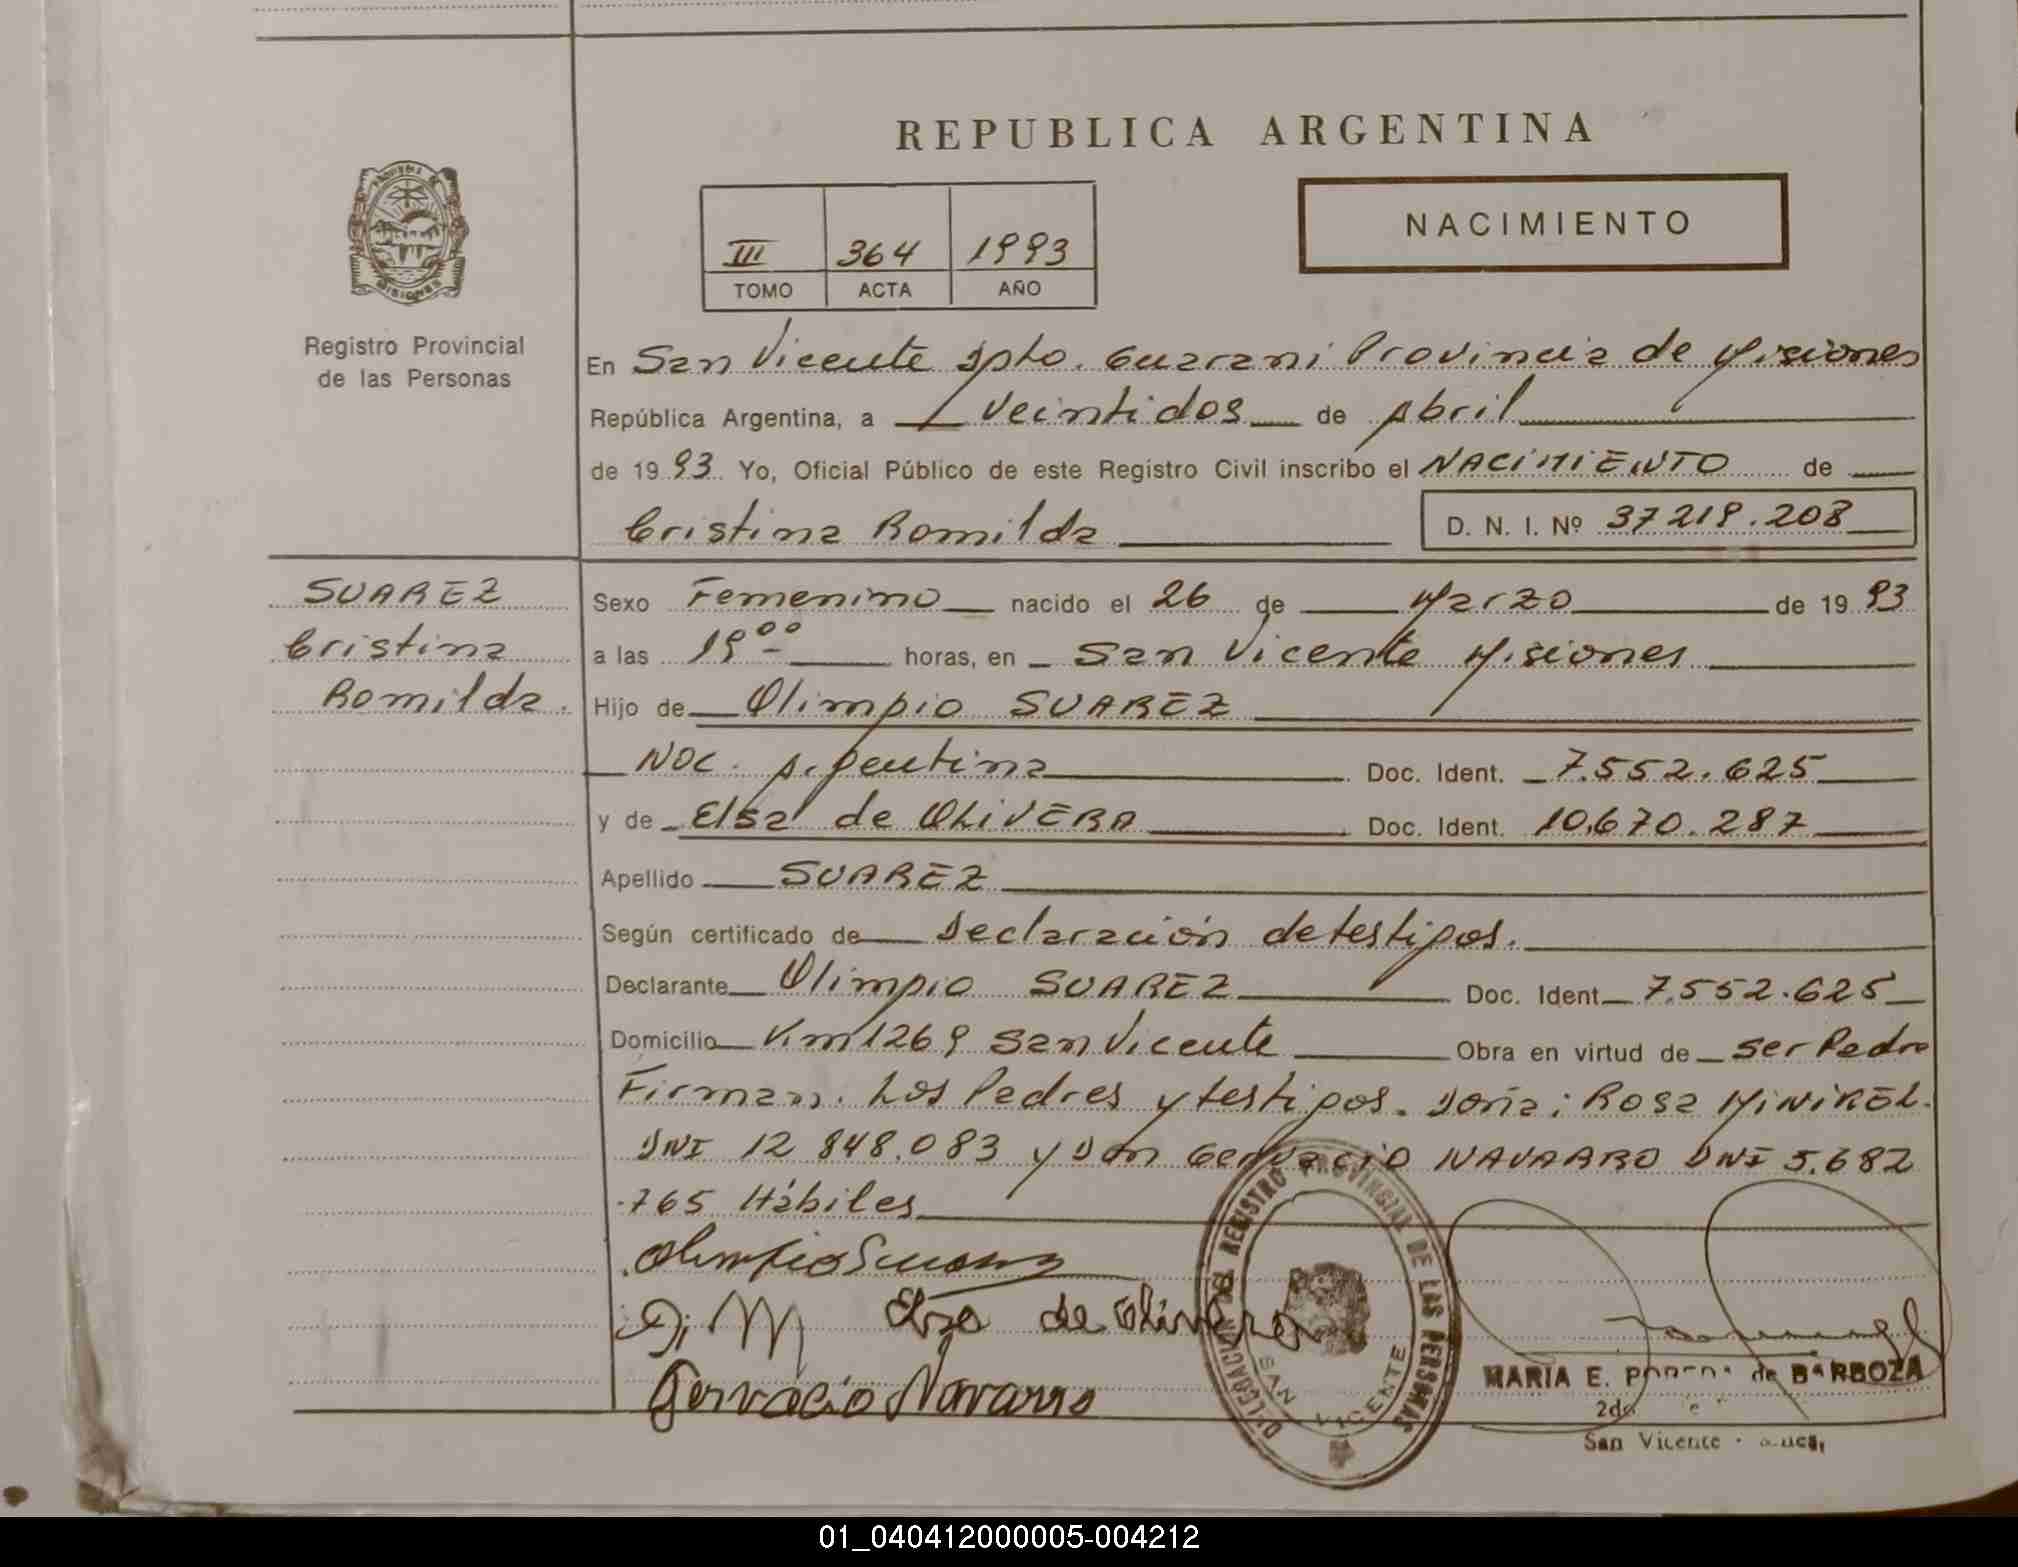 REPUBLICA ARGENTINA
NACIMIENTO
III 364 1993
TOMO ACTA AÑO
MISIONES
Registro Provincial
de las Personas
En San Vicente Dpto. Guarani Provincia de Misiones
República Argentina, a veintidos de Abril
de 1993 Yo, Oficial Público de este Registro Civil inscribo el NACIMIENTO de
Cristina Romilda D. N. I. Nº 37219.208
SUAREZ
Cristina
Romilda.
Sexo Femenino nacido el 26 de Marzo de 1993
a las 19 00 horas, en San Vicente Misiones
Hijo de Olimpio SUAREZ
Nac. Argentina Doc. Ident. 7.552.625
y de Elsa de OLIVERA Doc. Ident. 10.670.287
Apellido SUAREZ
Según certificado de Declaración de testigos.
Declarante Olimpio SUAREZ Doc. Ident 7.552.625
Domicilio Km 1269 San Vicente Obra en virtud de ser Padre
Firman. Los Padres y testigos. Doña: Rosa
DNI 12 848.083 y Don Gervacio NAVARRO DNI 5.682
.765 Hábiles
Olimpio Suarez
Elsa de Olivera
Gervacio Navarro
DELEGACION DEL REGISTRO PROVINCIAL DE LAS PERSONAS
SAN VICENTE
MARIA E. de BARBOZA
San Vicente
01_040412000005-004212